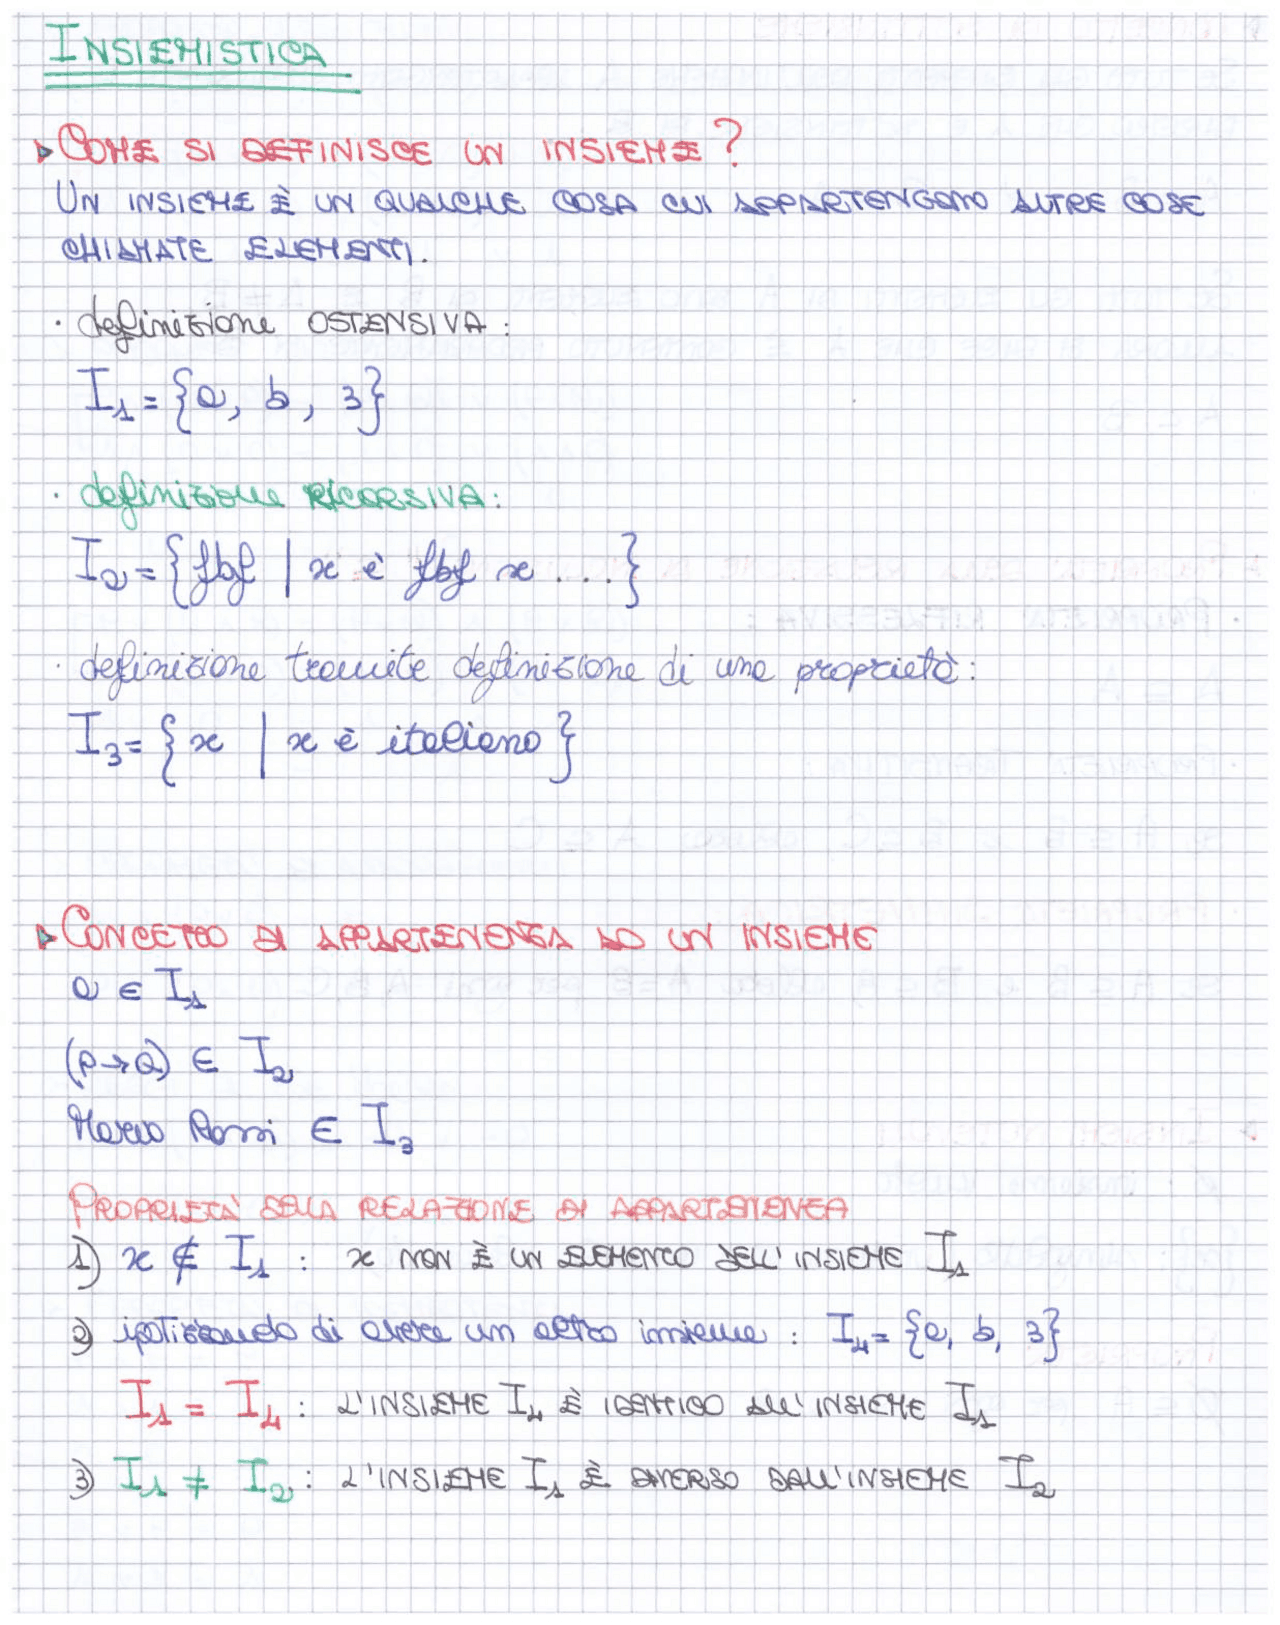 INSIEMISTICA
▸ COME SI DEFINISCE UN INSIEME?
UN INSIEME È UN QUALCHE COSA CUI APPARTENGONO ALTRE COSE
CHIAMATE ELEMENTI.
· definizione OSTENSIVA:
I₁ = {a, b, 3}
· definizione RICORSIVA:
I₂ = {fbf | x è fbf x ....}
· definizione tramite definizione di una proprietà:
I₃ = {x | x è italiano}
▸ CONCETTO DI APPARTENENZA AD UN INSIEME
a ∈ I₁
(P→Q) ∈ I₂
Mario Rossi ∈ I₃
PROPRIETÀ DELLA RELAZIONE DI APPARTENENZA
1) x ∉ I₁ : x NON È UN ELEMENTO DELL'INSIEME I₁
2) ipotizzando di avere un altro insieme : I₄ = {a, b, 3}
I₁ = I₄ : L'INSIEME I₄ È IDENTICO ALL'INSIEME I₁
3) I₁ ≠ I₂ : L'INSIEME I₁ È DIVERSO DALL'INSIEME I₂